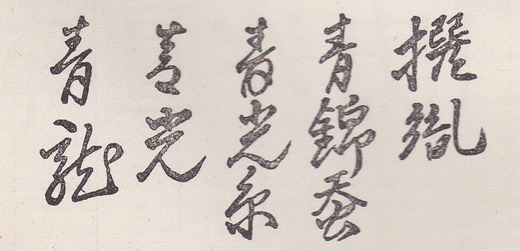 撰胤
青錦蚕
青光系
青光
青龍